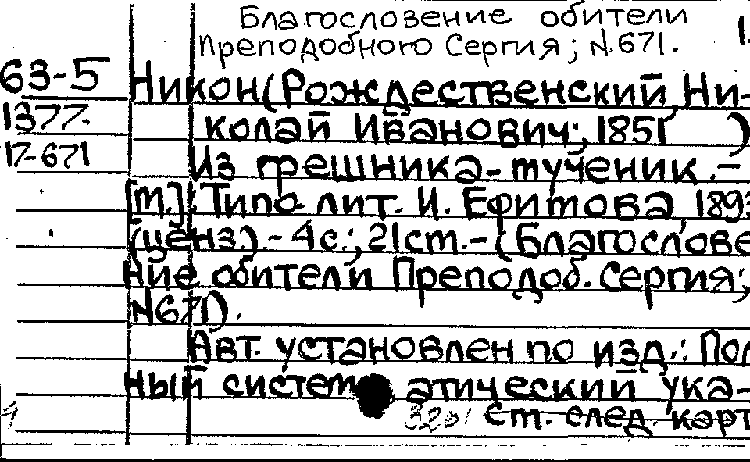 Благословение обители 1.
Преподобного Сергия; N.671.
63-5 Никон(Рождественский, Ни-
1377- колай Иванович; 1851 )
17-671 Из грешника-мученик.-
[М.]: Типо-лит. И. Ефимова, 1893
(ценз.).- 4с.; 21см.-(Благослове
ние обители Преподоб. Сергия;
N671).
Авт. установлен по изд.: Пол
ный систематический ука-
См. след. карт